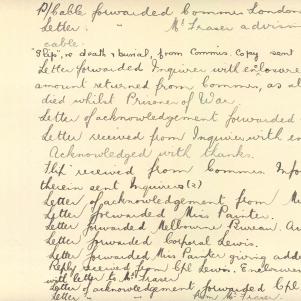 P/Cable forwarded Commis London
Letter " Mr Fraser advisin
cable.
"Slip", re death & burial, from Commis. Copy sent
Letter forwarded Inquirer with enclosure
amount returned from Commis, as
died whilst Prisoner of War.
Letter of acknowledgement forwarded
Letter received from Inquirer with en
Acknowledged with thanks.
received from Commis Info
therein sent Inquirers (2)
Letter of acknowledgement from M
Letter forwarded Miss Painter.
Letter forwarded Melbourne Bureau. A
Letter forwarded Corporal Lewis.
Letter forwarded Miss Painter giving addre
Reply received from Cpl Lewis. Enclosure
with letter to Mr Fraser.
Letter of acknowledgement forwarded Cpl
Letter " " from Mr Fraser.